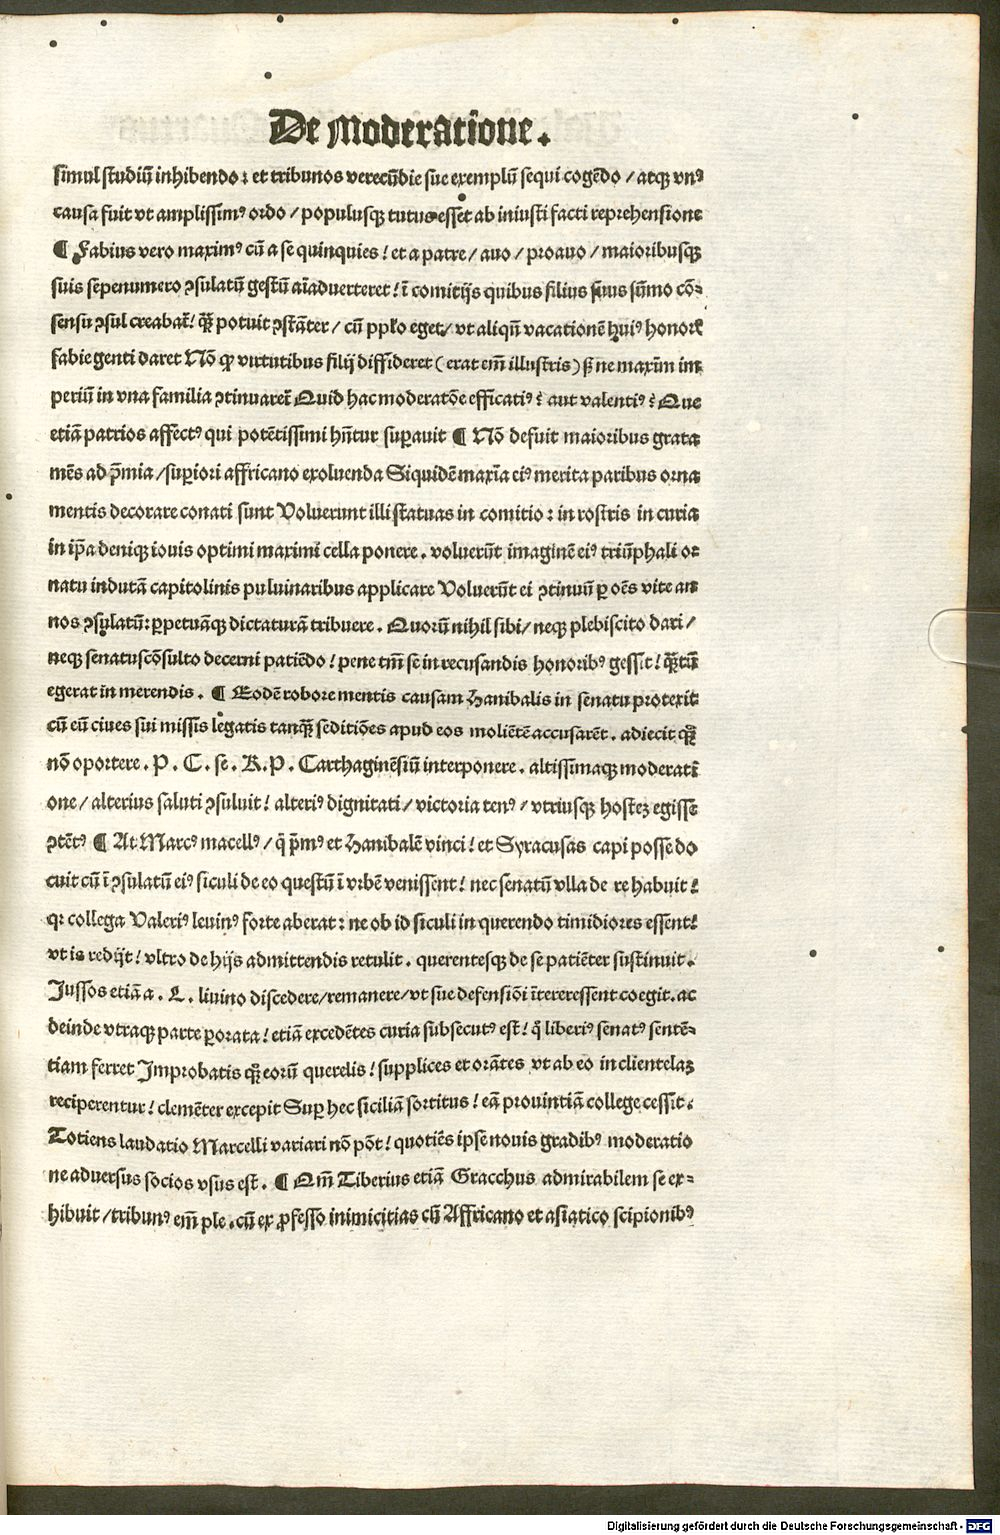 De Moderatione.
simul studiū inhibendo: et tribunos verecūdie sue exemplū sequi cogēdo / atqꝫ vnꝰ
causa fuit vt amplissimꝰ ordo / populusqꝫ tutus esset ab iniusti facti reprehensione
¶ Fabius vero maximꝰ cū a se quinquies! et a patre / auo / proauo / maioribusqꝫ
suis sepenumero ꝯsulatū gestū aīaduerteret! ī comitijs quibus filius suus sūmo cō-
sensu ꝯsul creabat̄! qꝫ̄ potuit ꝯstāter / cū pplo eget / vt aliqū vacationē huiꝰ honor
fabie genti daret Nō ꝙ virtutibus filij diffideret (erat em̄ illustris) sꝫ ne maximū im
periū in vna familia ꝯtinuaret̄ Quid hac moderatōe efficatiꝰ ē aut valentiꝰ ē Que
etiā patrios affectꝰ qui potētissimi hn̄tur suꝑauit ¶ Nō defuit maioribus grata
mēs ad p̄mia / suꝑiori affricano exoluenda Siquidē maxīa eiꝰ merita paribus orna
mentis decorare conati sunt Voluerunt illi statuas in comitio: in rostris in curia
in ip̄a deniqꝫ iouis optimi maximi cella ponere. voluerūt imaginē eiꝰ triūphali or
natu indutā capitolinis puluinaribus applicare Voluerūt ei ꝯtinuū ꝑ oēs vite an
nos ꝯsulatū: ꝑpetuāqꝫ dictaturā tribuere. Quorū nihil sibi / neqꝫ plebiscito dari /
neqꝫ senatuscōsulto decerni patiēdo! pene tm̄ se in recusandis honoribꝰ gessit! qꝫ̄tū
egerat in merendis. ¶ Eodē robore mentis causam Hanibalis in senatu protexit
cū eū ciues sui missis legatis tanqꝫ̄ seditiōes apud eos moliētē accusarēt. adiecit qꝫ̄
nō oportere. P. C. se. R. P. Carthaginēsiū interponere. altissimaqꝫ moderati
one / alterius saluti ꝯsuluit! alteriꝰ dignitati / victoria tenꝰ / vtriusqꝫ hosteꝫ egisse
ꝯtētꝰ ¶ At Marcꝰ macellꝰ / q̄ p̄mꝰ et Hanibalē vinci! et Syracusas capi posse do
cuit cū ī ꝯsulatū eiꝰ siculi de eo questū ī vrbē venissent! nec senatū vlla de re habuit!
qꝛ collega Valeriꝰ leuinꝰ forte aberat: ne ob id siculi in querendo timidiores essent!
vt is redijt! vltro de hijs admittendis retulit. querentesqꝫ de se patiēter sustinuit.
Jussos etiā a. L. liuino discedere / remanere / vt sue defensiōi ītereressent coegit. ac
deinde vtraqꝫ parte ꝑorata! etiā excedētes curia subsecutꝰ est! q̊ liberiꝰ senatꝰ sentē-
tiam ferret Improbatis qꝫ̄ eorū querelis! supplices et orātes vt ab eo in clientelaꝫ
reciperentur! clemēter excepit Suꝑ hec siciliā sortitus! eā prouintiā college cessit.
Totiens laudatio Marcelli variari nō pōt! quotiēs ipse nouis gradibꝰ moderatio
ne aduersus socios vsus est. ¶ Qm̄ Tiberius etiā Gracchus admirabilem se ex-
hibuit / tribunꝰ em̄ ple. cū ex ꝓfesso inimicitias cū Affricano et asiatico scipionibꝰ
Digitalisierung gefördert durch die Deutsche Forschungsgemeinschaft - DFG